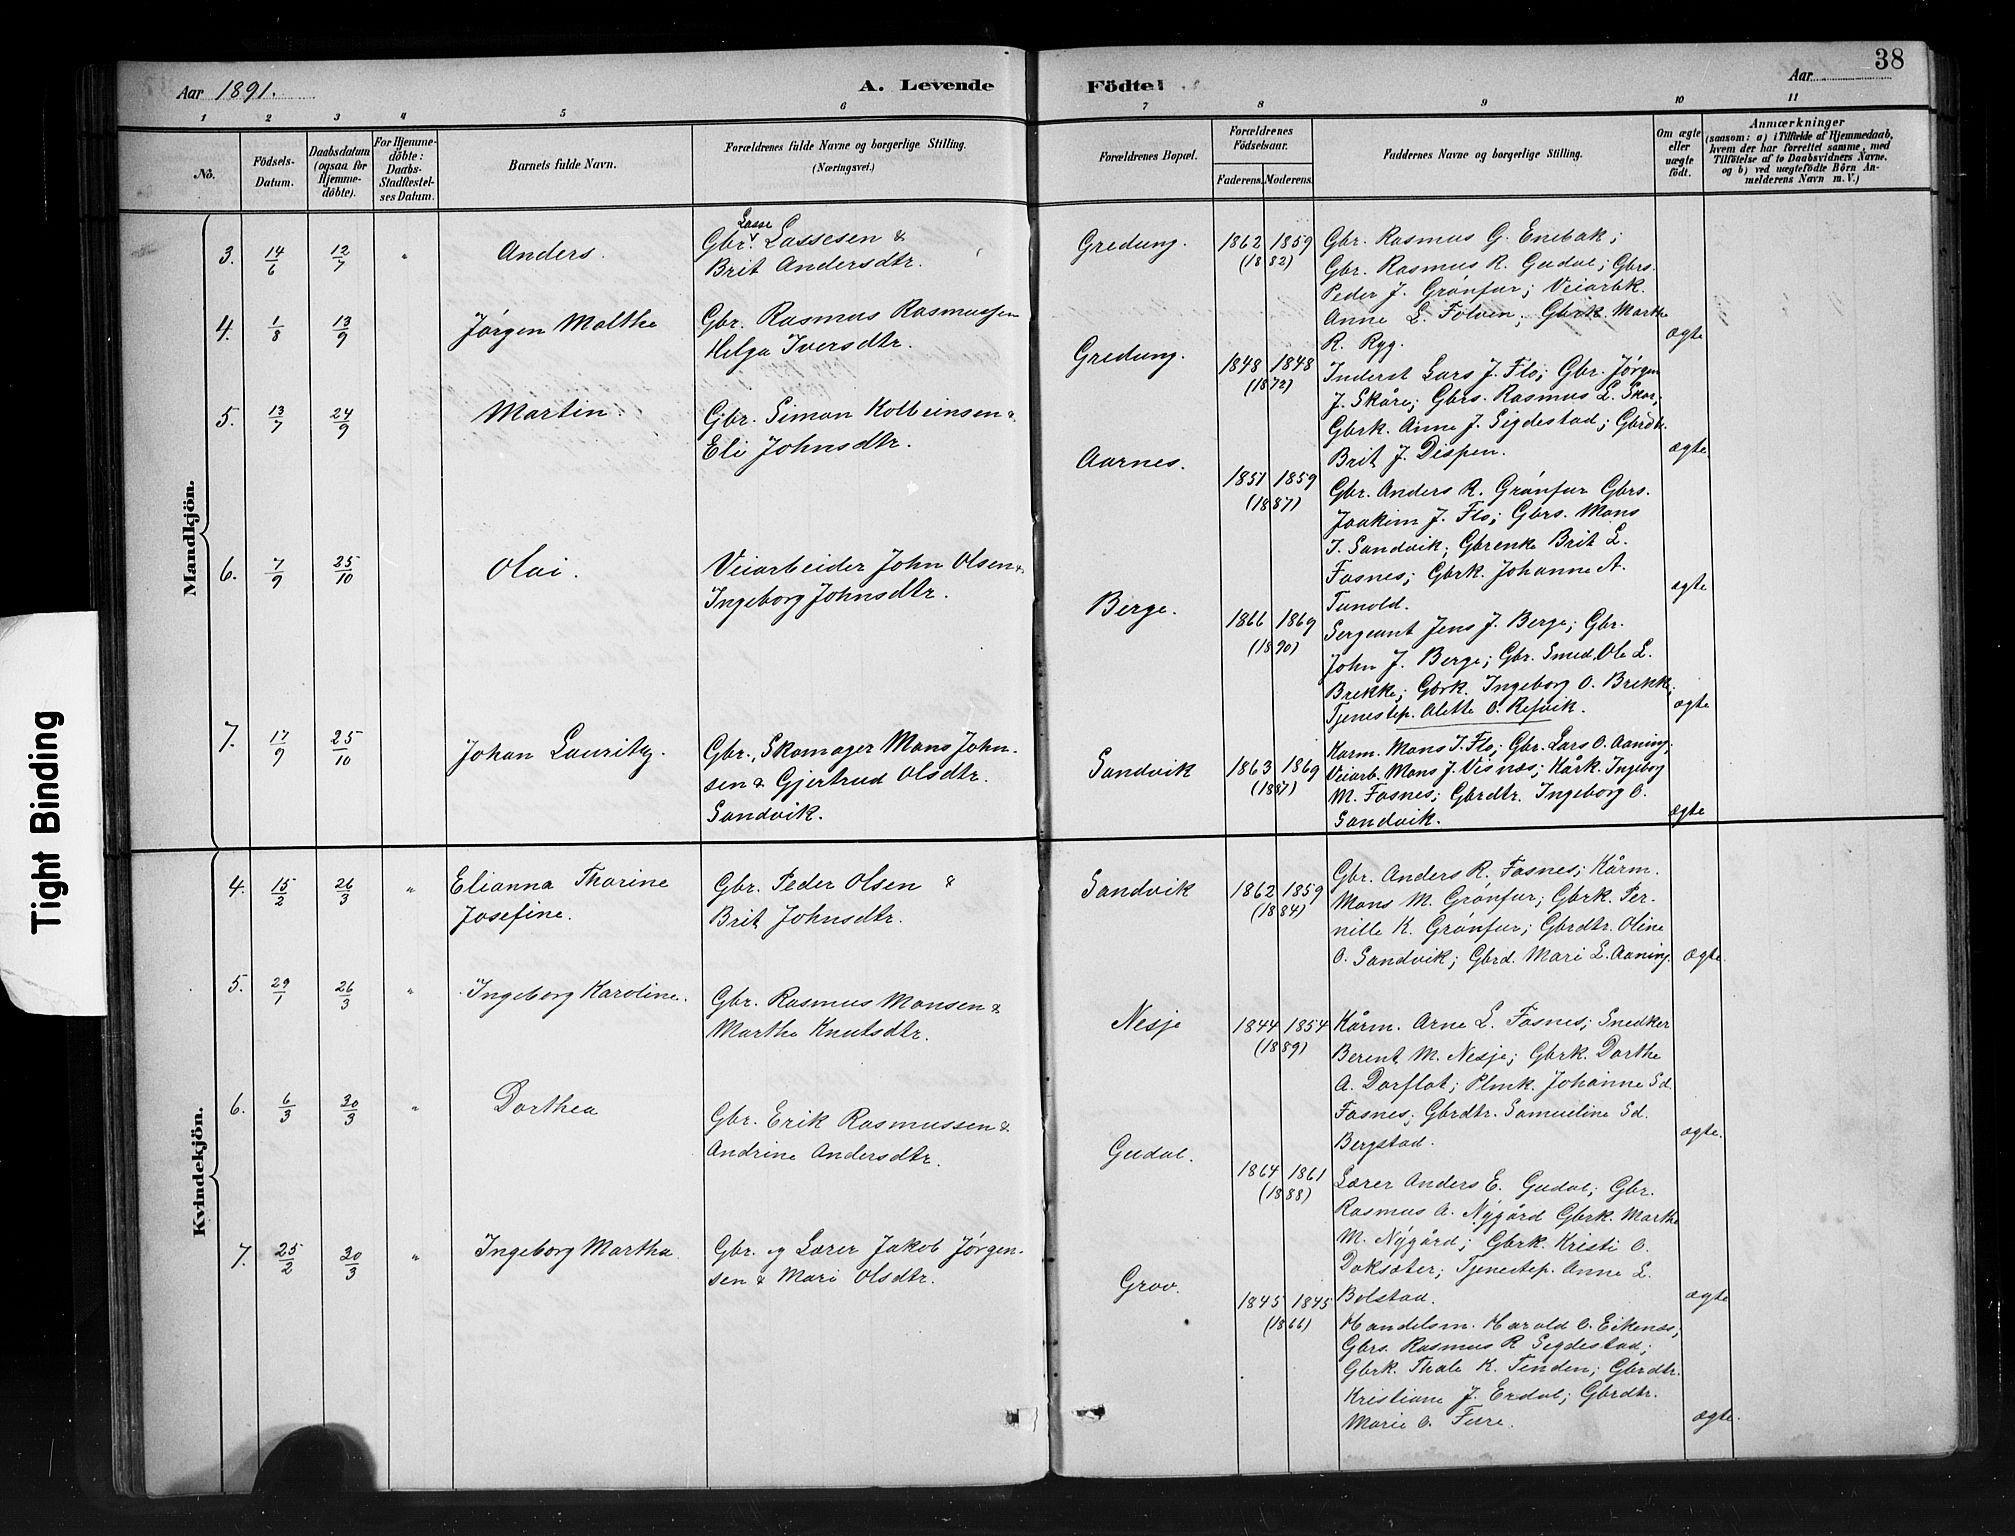 38
Aar 1891. A. Levende Födte! Aar
1 2 3 4 5 6 7 8 9 10 11
No.
Födsels-Datum.
Daabsdatum (ogsaa for Hjemme-döbte).
For Hjemme-döbte: Daabs-Stadfæstel-ses Datum.
Barnets fulde Navn.
Forældrenes fulde Navne og borgerlige Stilling. (Næringsvei.)
Forældrenes Bopæl.
Forældrenes Födselsaar.
Faderens. Moderens.
Faddernes Navne og borgerlige Stilling.
Om ægte eller uægte födt.
Anmærkninger
(saasom: a) i Tilfælde af Hjemmedaab,
hvem der har forrettet samme, med
Tilföielse af to Daabsvidners Navne,
og b) ved uægtefödte Börn An-
melderens Navn m. V.)
Mandkjön.
3. 14/6 12/7 " Anders.
Lasse
Gbr. Lassesen &
Brit Andersdtr.
Gredung. 1862 1859
(1882)
Gbr. Rasmus G. Enebak;
Gbr. Rasmus R. Gudal; Gbrs.
Peder J. Grønfur; Veiarbk.
Anne L. Folven; Gbrk. Marthe
R. Ryg. ægte
4. 1/8 13/9 Jørgen Malthe
Gbr. Rasmus Rasmussen
Helga Iversdtr.
Gredung. 1848 1848
(1872)
Inderst Lars J. Flo; Gbr. Jørgen
J. Skåre; Gbrs. Rasmus L. Skar;
Gbrk. Anne J. Sigdestad; Gbrdtr.
Brit J. Dispen. ægte.
5. 13/7 24/9 Martin.
Gbr. Simon Kolbeinsen &
Eli Johnsdtr.
Aarnes. 1851 1859
(1887)
Gbr. Anders R. Grønfur Gbrs.
Joakim J. Flo; Gbrs. Mons
J. Sandvik; Gbrenke Brit L.
Fosnes; Gbrk. Johanne A.
Tunold. ægte
6. 7/9 25/10 Olai.
Veiarbeider John Olsen &
Ingeborg Johnsdtr.
Berge. 1866 1869
(1890)
Sergeant Jens J. Berge; Gbr.
John J. Berge; Gbr. Smed, Ole L.
Brekke; Gbrk. Ingeborg O. Brekke;
Tjenestep. Olette O. Refvik. ægte
7. 17/9 25/10 Johan Lauritz.
Gbr., Skomager Mons John-
sen & Gjertrud Olsdtr.
Sandvik.
Sandvik 1863 1869
(1887)
Karm. Mons J. Flo; Gbr. Lars O. Aaning;
Veiarb. Mons J. Visnæs; Kårk. Ingebor
M. Fosnes; Gbrdtr. Ingeborg O.
Sandvik. ægte
Kvindekjön.
4. 15/2 26/3 " Elianna Thorine
Josefine.
Gbr. Peder Olsen &
Brit Johnsdtr.
Sandvik 1862 1859
(1884)
Gbr. Anders R. Fosnes; Kårm.
Mons M. Grønfur; Gbrk. Per-
nille K. Grønfur; Gbrdtr. Oline
O. Sandvik; Gbrd. Mari L. Aaning. ægte.
5. 29/1 26/3 " Ingeborg Karoline.
Gbr. Rasmus Monsen &
Marthe Knutsdtr.
Nesje 1844 1854
(1889)
Kårm. Arne L. Fosnes; Snedker
Berent M. Nesje; Gbrk. Dorthe
A. Dorflot; Plmk. Johanne Sd.
Fosnes; Gbrdtr. Samueline Sd.
Bergstad. ægte.
6. 6/3 30/3 " Dorthea
Gbr. Erik Rasmussen &
Andrine Andersdtr.
Gudal. 1864 1861
(1888)
Lærer Anders E. Gudal; Gbr.
Rasmus A. Nygård Gbrk. Marthe
M. Nygård; Gbrk. Kristi O.
Doksæter; Tjenestep. Anne L.
Bolstad. ægte
7. 25/2 30/3 " Ingeborg Martha.
Gbr. og Lærer Jakob Jørgen-
sen & Mari Olsdtr.
Grov. 1845 1845
(1866)
Handelsm. Harald O. Eikenæs;
Gbrs. Rasmus R Sigdestad;
Gbrk. Thale K. Tenden; Gbrdtr.
Kristiane J. Erdal; Gbrdtr.
Marie O. Fure. ægte.
Tight Binding